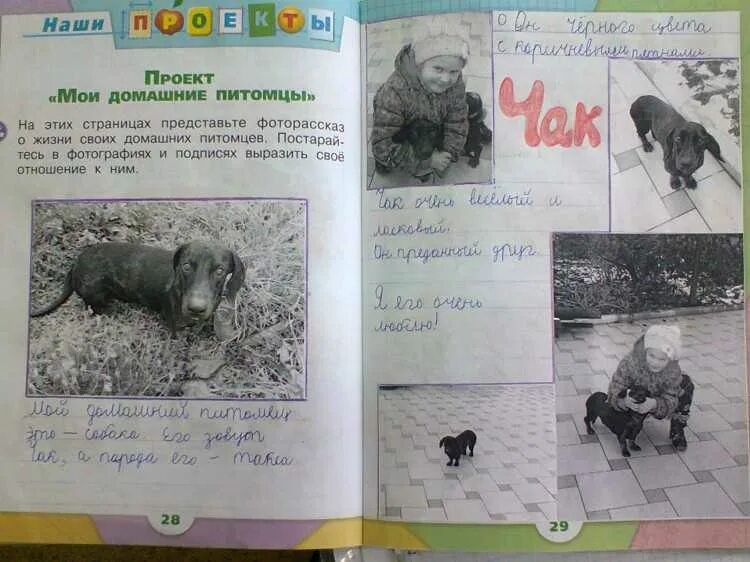 Наши ПРОЕКТЫ
Проект
«Мои домашние питомцы»
На этих страницах представьте фоторассказ
о жизни своих домашних питомцев. Постарай-
тесь в фотографиях и подписях выразить своё
отношение к ним.
Мой домашний питомец
это — собака Его зовут
Чак, а парода его — такса
28
Он чёрного цвета
с коричневыми пятнами.
Чак
Чак очень весёлый и
ласковый.
Он преданный друг.
Я его очень
люблю!
29